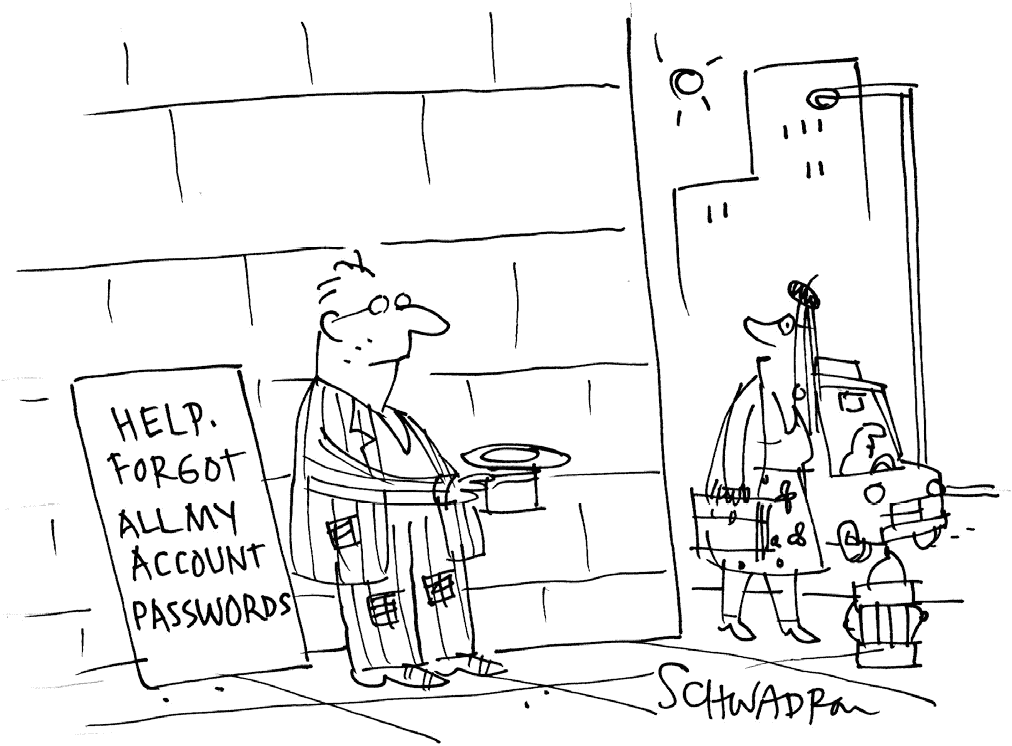 HELP.
FORGOT
ALL MY
ACCOUNT
PASSWORDS
SCHWADRON